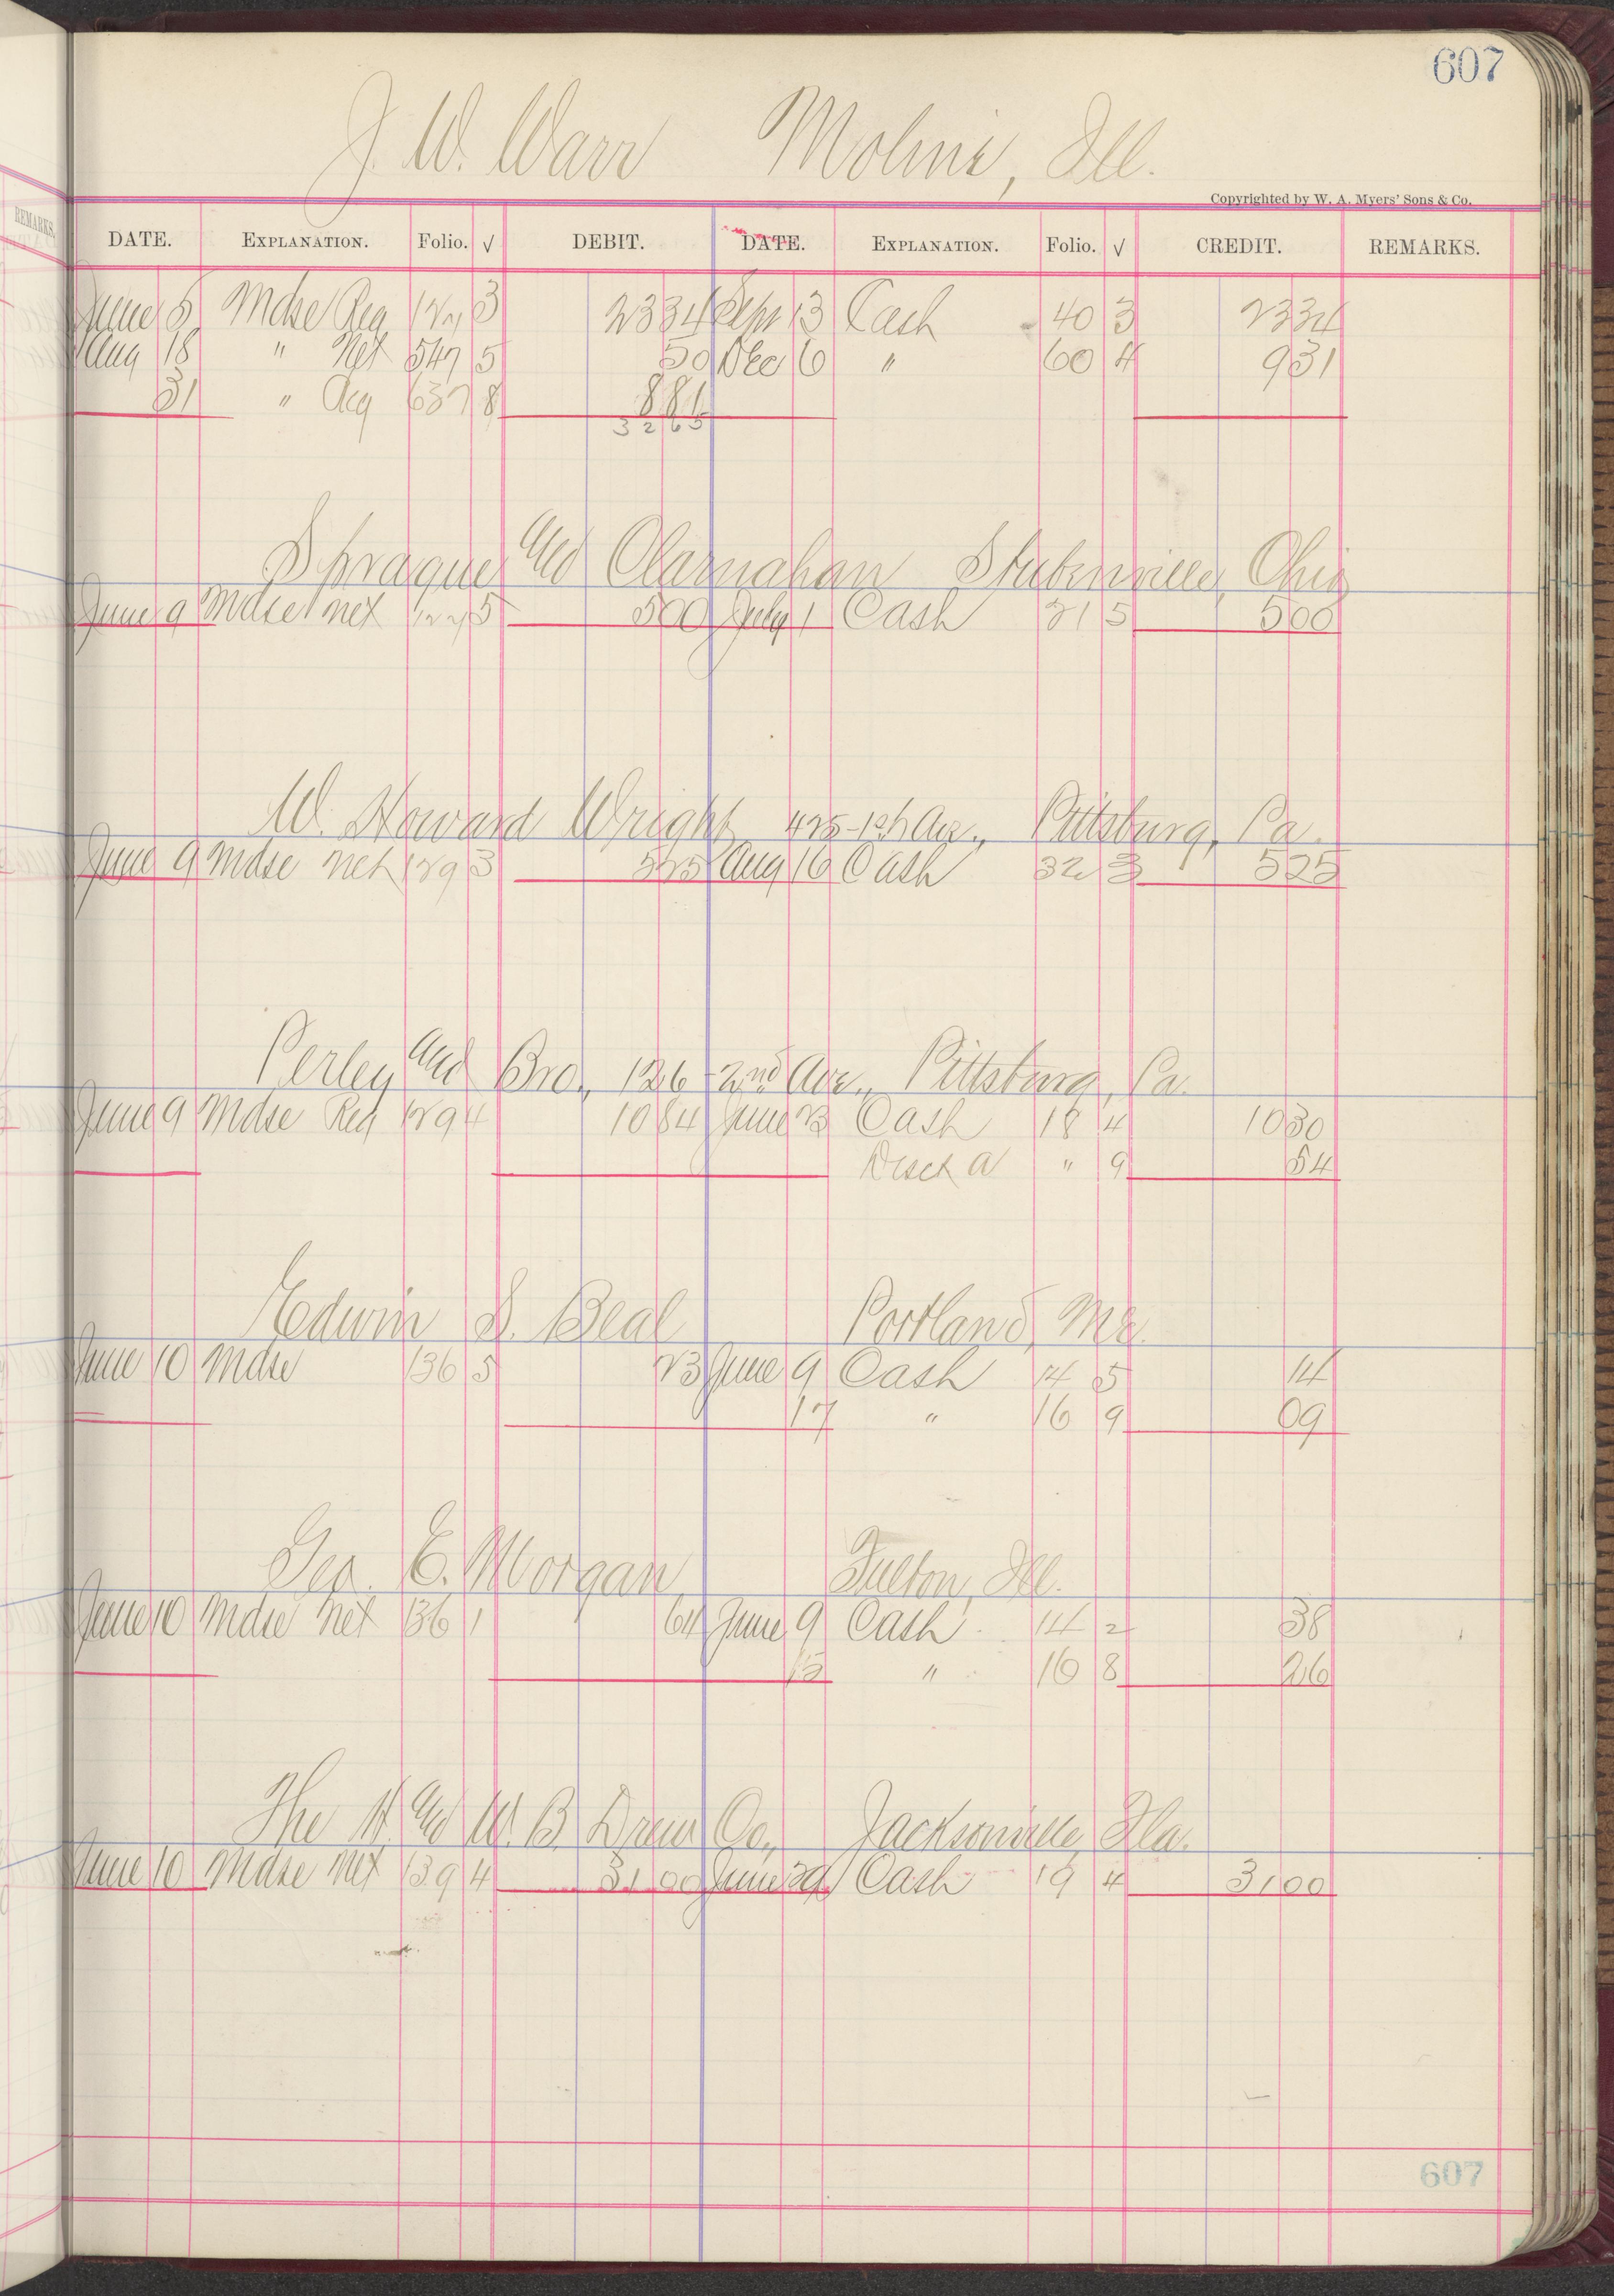 607
J. W. Warr Moline, Ill.
Copyrighted by W. A. Myers' Sons & Co.
REMARKS.
DATE. EXPLANATION. Folio. √ DEBIT. DATE. EXPLANATION. Folio. √ CREDIT. REMARKS.
June 5 Mdse Reg 127 3 23 34 Sep 13 Cash 40 3 23 34
Aug 18 " Net 547 5 50 Dec 6 " 60 4 9 31
31 " Reg 637 8 8 81
32 65
Sprague and Clarnahan Stubenville, Ohio
June 9 Mdse net 127 5 5 00 July 1 Cash 21 5 5 00
W. Howard Wright 425-1st Ave., Pittsburg, Pa.
June 9 Mdse Net 129 3 5 25 Aug 16 Cash 32 3 5 25
Perley and Bro., 126-2nd Ave., Pittsburg, Pa.
June 9 Mdse Reg 129 4 10 84 June 23 Cash 18 4 10 30
Disct a " 9 54
Edwin S. Beal Portland, Me.
June 10 Mdse 136 5 23 June 9 Cash 14 5 14
17 " 16 9 09
Geo. E. Morgan Fulton, Ill.
June 10 Mdse Net 136 1 64 June 9 Cash 14 2 38
15 " 16 8 26
The H. and W. B. Drew Co., Jacksonville, Fla.
June 10 Mdse Net 139 4 31 00 June 29 Cash 19 4 31 00
607